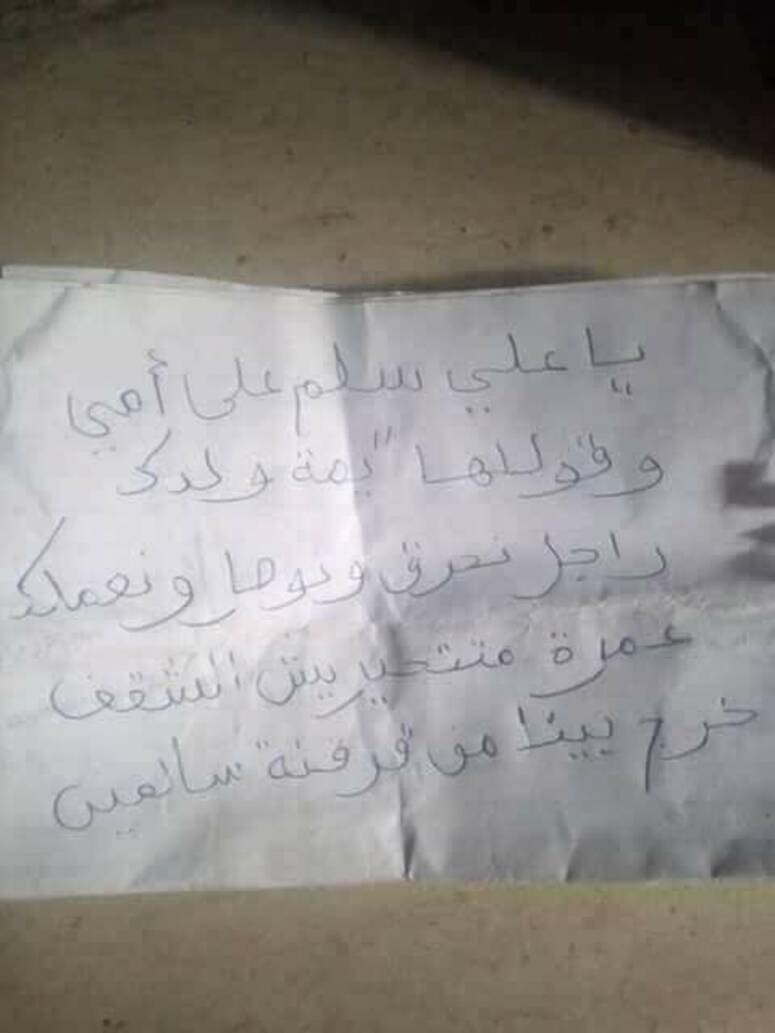 يا علي سلم على أمي
وقوللها "يمة ولدك
راجل نحرق ونوصل ونعملك
عمرة متتحيريش الشقف
خرج بينا من قرقنة سالمين